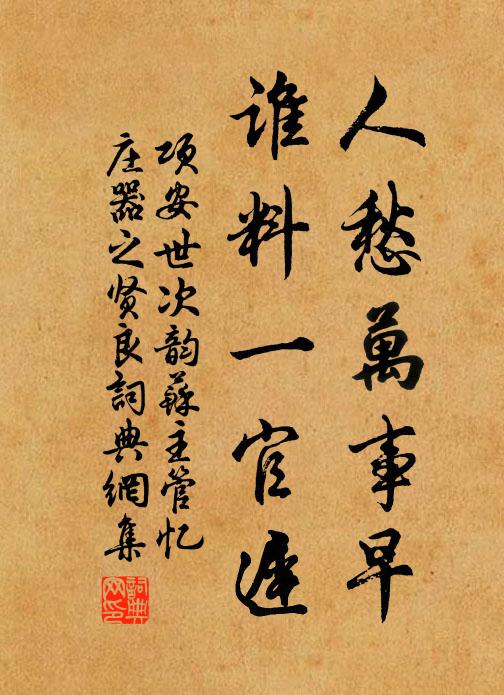 人愁萬事早
誰料一官遲
項安世次韵蘇主管忆
庄器之贤良詞典網集
詞典
网印